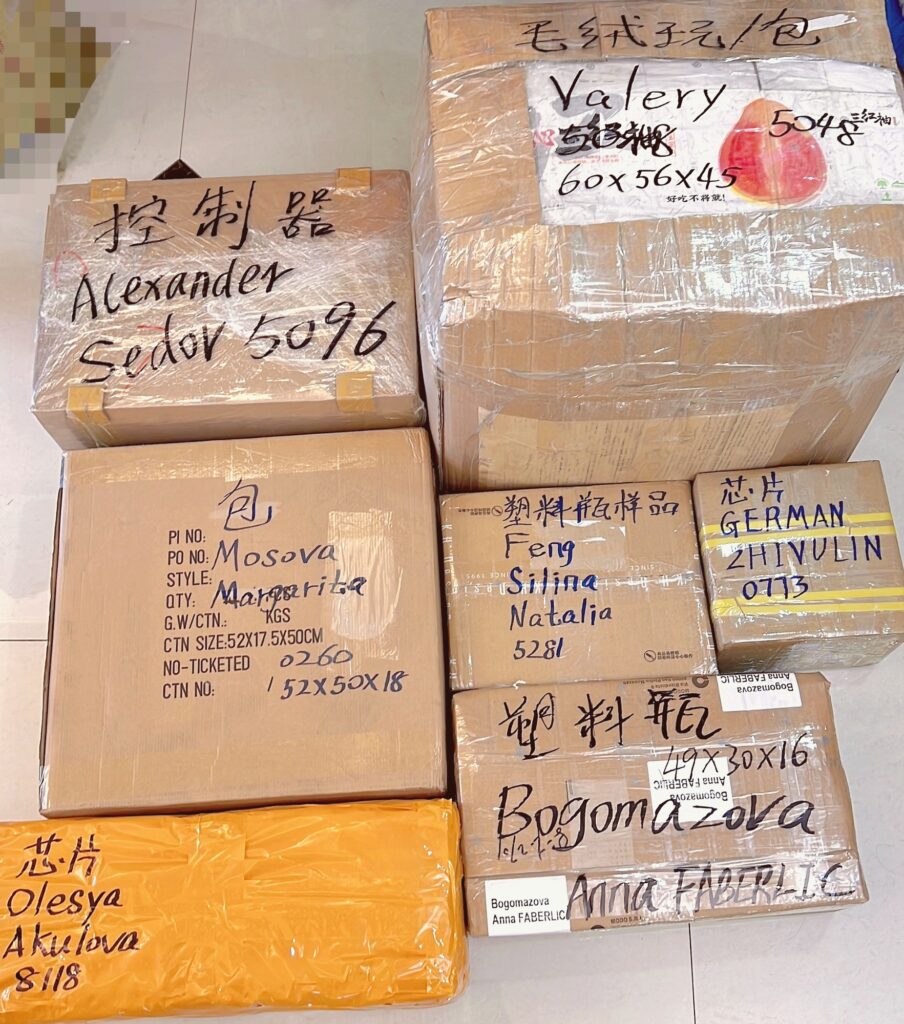 毛绒玩/包
Valery
5048
三红柚
60x56x45
好吃不将就!
控制器
Alexander
Sedov 5096
包
PI NO:
PO NO: Mosova
STYLE:
QTY: Margarita
G.W/CTN.: KGS
CTN SIZE:52X17.5X50CM
NO-TICKETED 0260
CTN NO: 52X50X18
塑料瓶样品
Feng
Silina
Natalia
5281
芯片
GERMAN
ZHIVULIN
0773
Bogomazova
Anna FABERLIC
塑料瓶
49X30X16
Bogomazova
Anna FABERLIC
Bogomazova
Anna FABERLIC
Bogomazova
Anna FABERLIC
芯片
Olesya
Akulova
8118